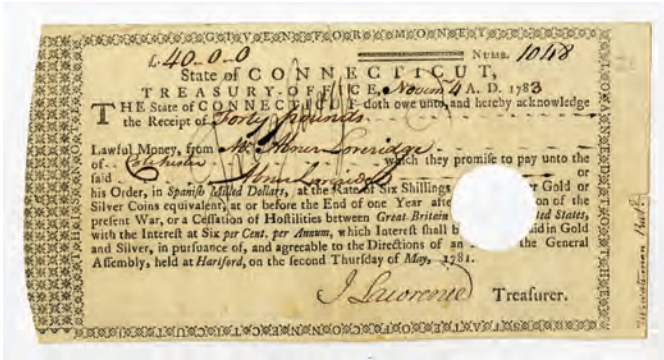 GIVEN FOR MONEY LOANED
£ 40-0-0 NUMB. 1048
State of CONNECTICUT,
TREASURY-OFFICE, Novem 4 A. D. 1783
THE State of CONNECTICUT doth owe unto, and hereby acknowledge
the Receipt of Forty pounds
Lawful Money, from Mr Abner Loveridge
of Colchester which they promiſe to pay unto the
ſaid Abner Loveridge or
his Order, in Spaniſh Milled Dollars, at the Rate of Six Shillings Gold or
Silver Coins equivalent, at or before the End of one Year on of the
preſent War, or a Ceſſation of Hoſtilities between Great-Britain ted States,
with the Intereſt at Six per Cent. per Annum, which Intereſt ſhall aid in Gold
and Silver, in purſuance of, and agreeable to the Directions of an the General
Aſſembly, held at Hartford, on the ſecond Thurſday of May, 1781.
J Lawrence Treaſurer.
STATE OF CONNECTICUT